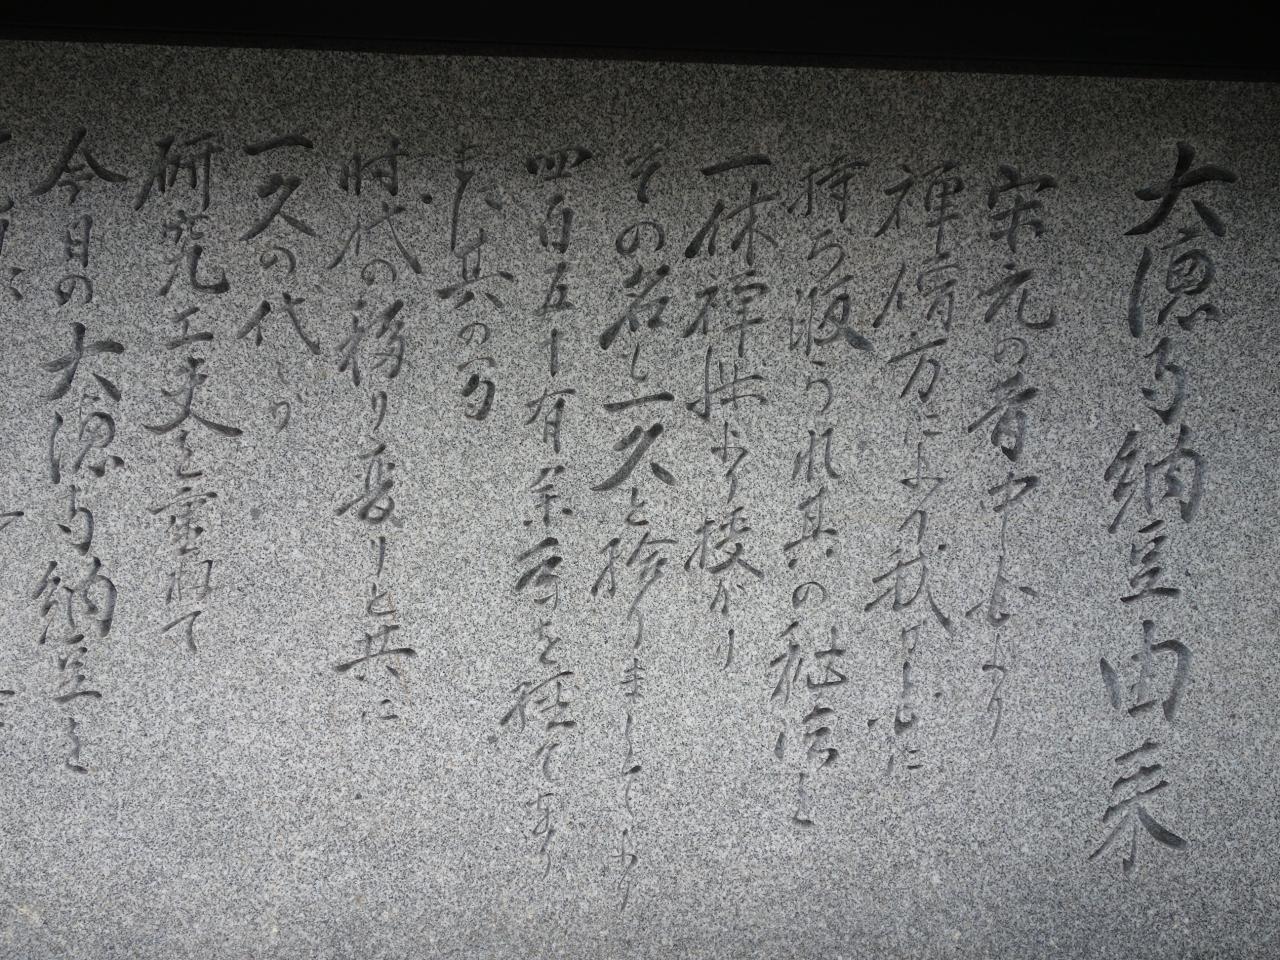 大徳寺納豆由来
宋元の昔中国より
禅僧方によって我が国に
持ち渡られ其の秘法を
一休禅師より授かり
その名も一久と診りまして より
四百五十有余年を経てあり
また其の間
时代の移り変りと共に
一久の代々が
研究工夫を重ねて
今日の大徳寺納豆を